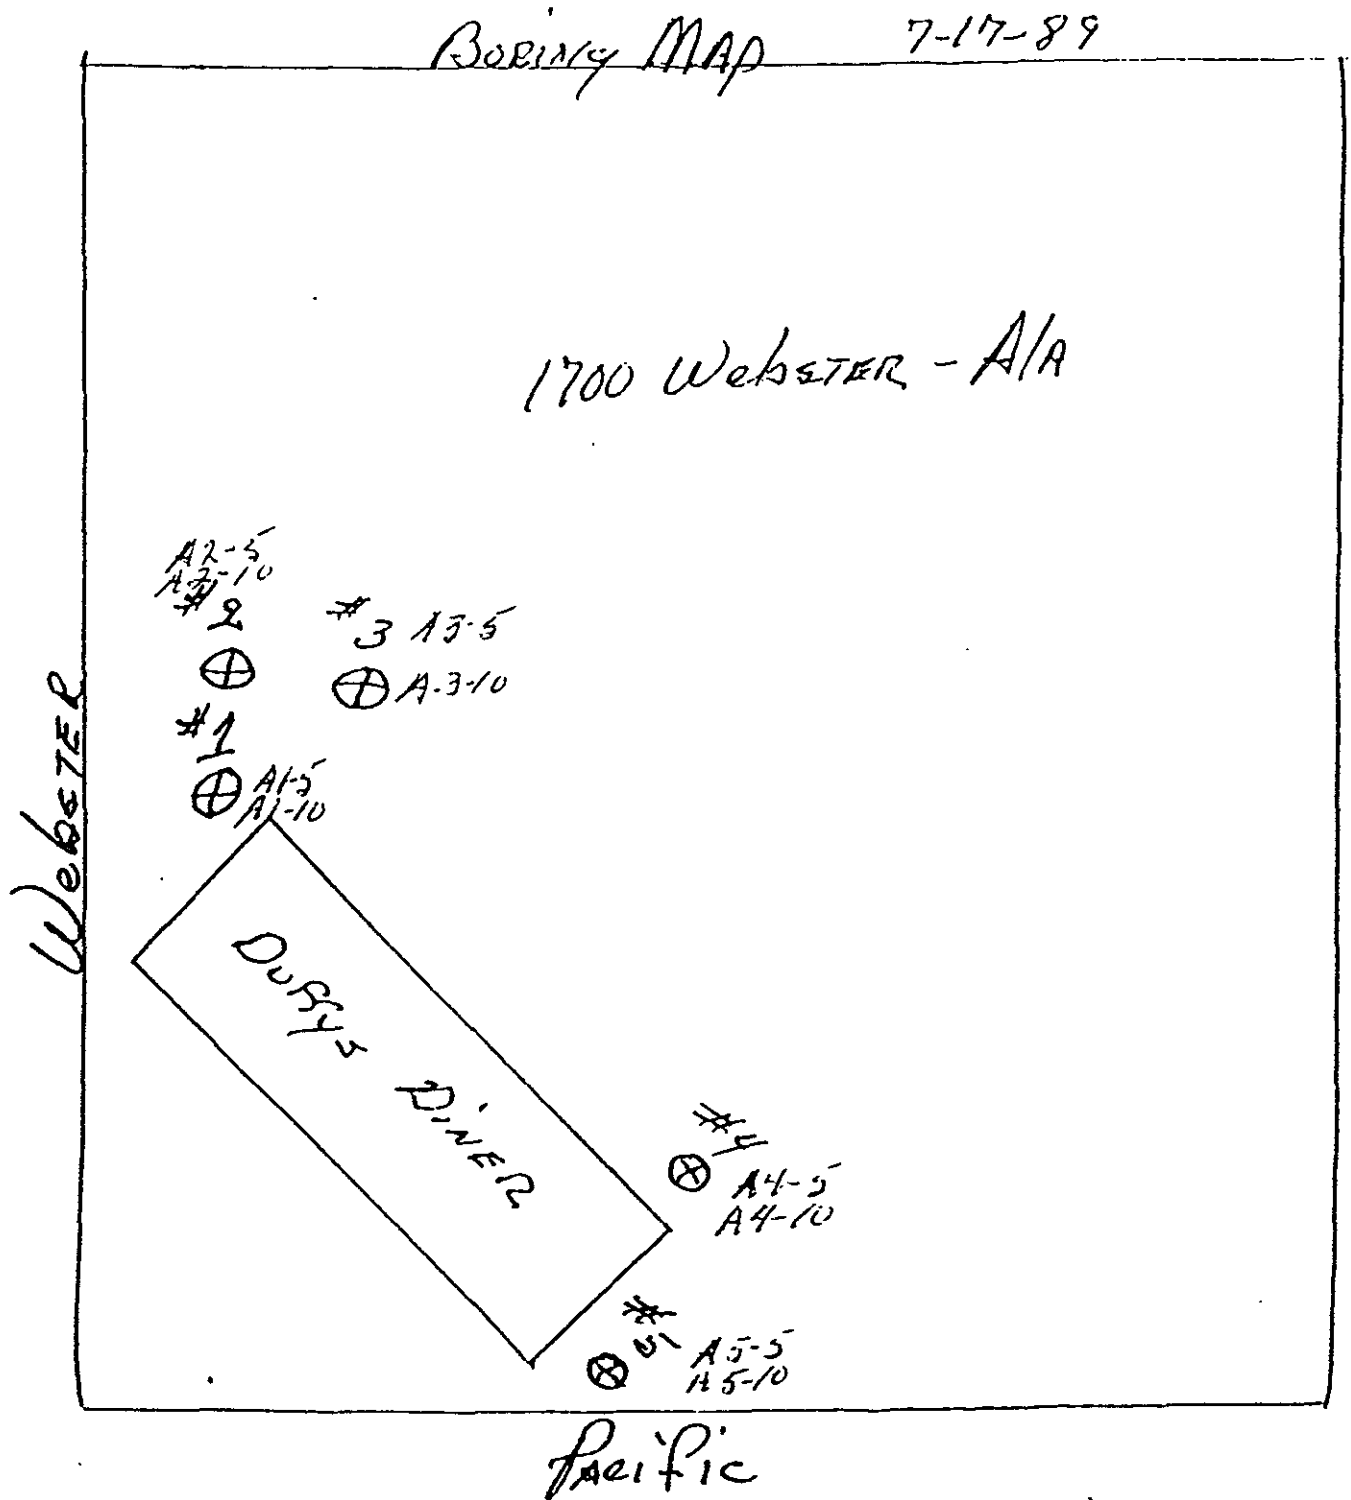 Boring Map 7-17-89
1700 Webster - A/A
A2-5
A2-10
#2
#3 A3-5
A-3-10
#1
A1-5
A1-10
Webster
Duffys Diner
#4
A4-5
A4-10
#5
A5-5
A5-10
Pacific